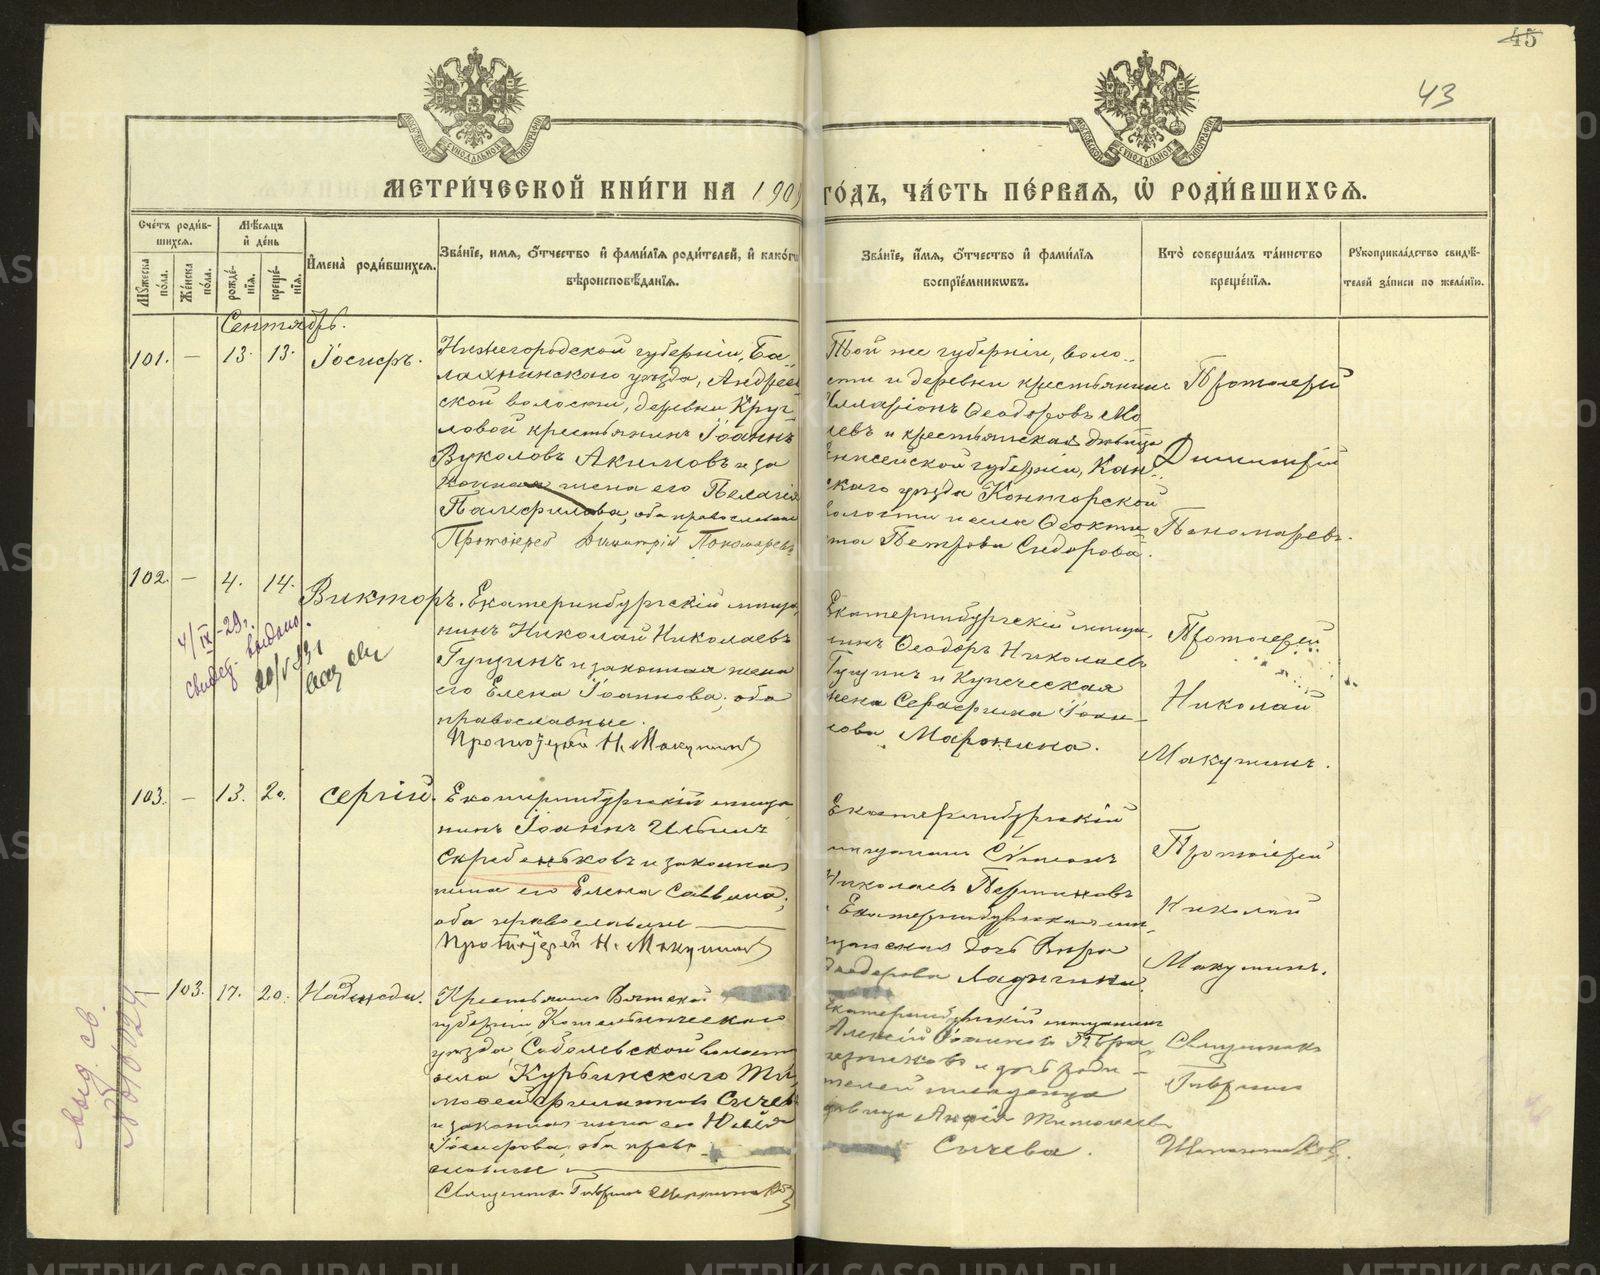 45
43
МЕТРИ́ЧЕСКОЙ КНИ́ГИ НА 1909 ГО́ДЪ, ЧА́СТЬ ПЕ́РВАЯ, Ѡ РОДИ́ВШИХСЯ.
Сче́тъ роди́вшихся.
Мꙋ́жеска по́ла.
Же́нска по́ла.
Мѣ́сяцъ и҆ де́нь
рожде́нїя.
креще́нїя.
И҆мена̀ роди́вшихся.
Зва́нїе, и́мя, ѻ҆́тчество и҆ фами́лїя роди́телей, и҆ како́гѡ вѣроисповѣ́данїя.
Зва́нїе, и҆́мя, ѻ҆́тчество и҆ фами́лїя воспрїе́мникѡвъ.
Кто̀ соверша́лъ та́инство креще́нїя.
Рꙋкоприкла́дство свидѣ́телей за́писи по жела́нїю.
Сентябрь.
101. — 13. 13. Іосифъ.
Нижегородской губерніи, Ба
лахнинскаго уѣзда, Андреев
ской волости, деревни Круг-
ловой крестьянинъ Іоаннъ
Вуколовъ Акимовъ и за
конная жена его Пелагія
Памфилова, оба православные
Протоіерей Димитрій Пономаревъ
Той же губерніи, воло-
сти и деревни крестьянинъ
Илларіонъ Ѳеодоровъ Мо
левъ и крестьянская дѣвица
Енисейской губерніи, Кан-
скаго уѣзда Конторской
волости и села Ѳеокти-
ста Петрова Сидорова.
Протоіерей
Димитрій
Пономаревъ.
102. — 4. 14. Викторъ.
4/IX-29 г.
свидет. выдано.
20/V 31
Екатеринбургскій мѣща
нинъ Николай Николаевъ
Гущинъ и законная жена
его Елена Іоаннова; оба
православные.
Протоіерей Н. Макушинъ
Екатеринбургскій мѣща-
нинъ Ѳеодоръ Николаевъ
Гущинъ и купеческая
жена Серафима Іоан-
нова Маронина.
Протоіерей
Николай
Макушинъ.
103. — 13. 20. Сергій.
Екатеринбургскій мѣща
нинъ Іоаннъ Ильинъ
Скребеньковъ и законная
жена его Елена Саввина;
оба православные
Протоіерей Н. Макушинъ
Екатеринбургскій
мѣщанинъ Симеонъ
Николаевъ
и Екатеринбургская мѣ-
щанская дочь Вѣра
Ѳеодорова Ладыгина.
Протоіерей
Николай
Макушинъ.
— 103. 17. 20. Надежда.
выд. св.
Крестьянинъ Вятской
губерніи Котельническаго
уѣзда, Соболевской волости
села Курбинскаго Ти
моѳей Филипповъ Сычевъ
и законная жена его Юлія
Іосифова, оба право
славные
Священникъ Гавріилъ
Екатеринбургскій мѣщанинъ
Алексій
и дочь роди-
телей младенца
дѣвица Тимоѳеева
Сычева.
Священникъ
Гавріилъ
METRIKI.GASO-URAL.RU